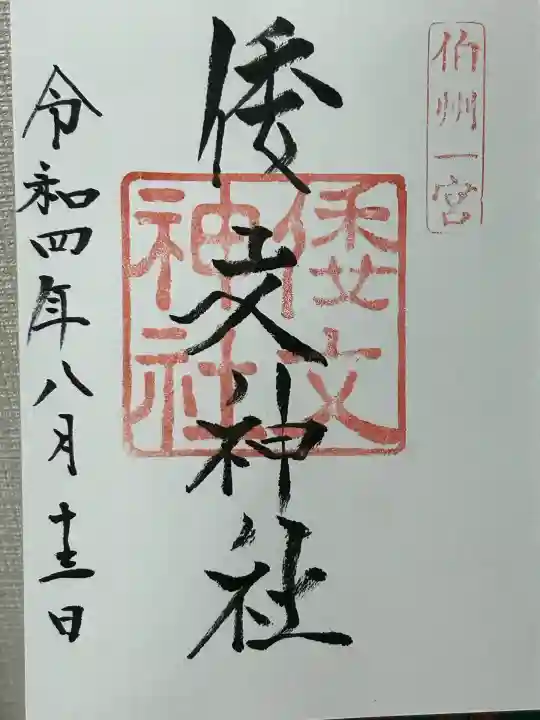 伯州一宮
倭文神社
倭文神社
令和四年八月十三日